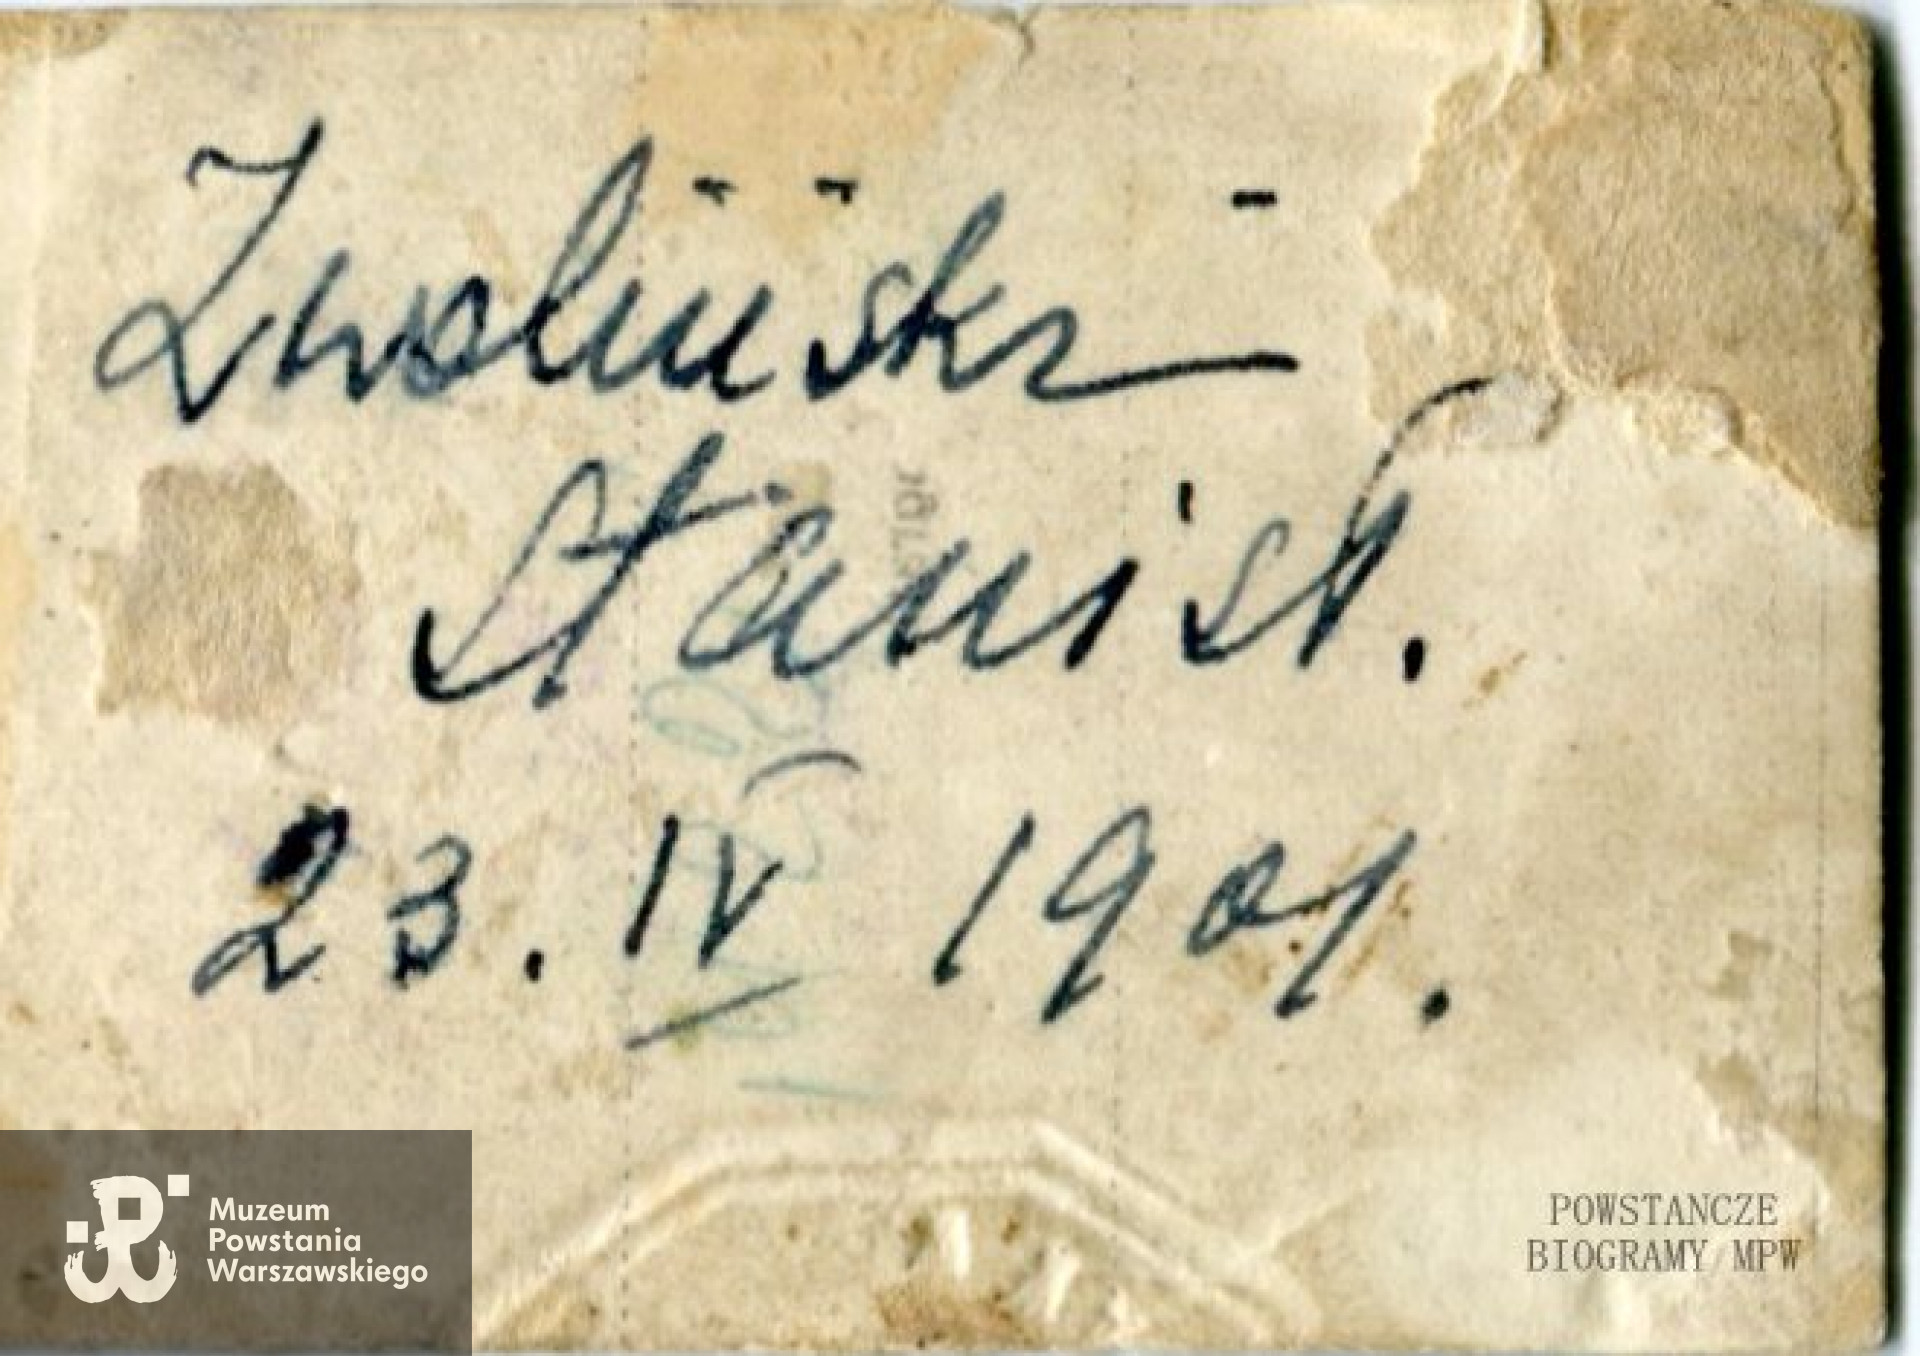 Zwoliński
Stanisł.
23. IV 1901.
Muzeum
Powstania
Warszawskiego
POWSTANCZE
BIOGRAMY MPW